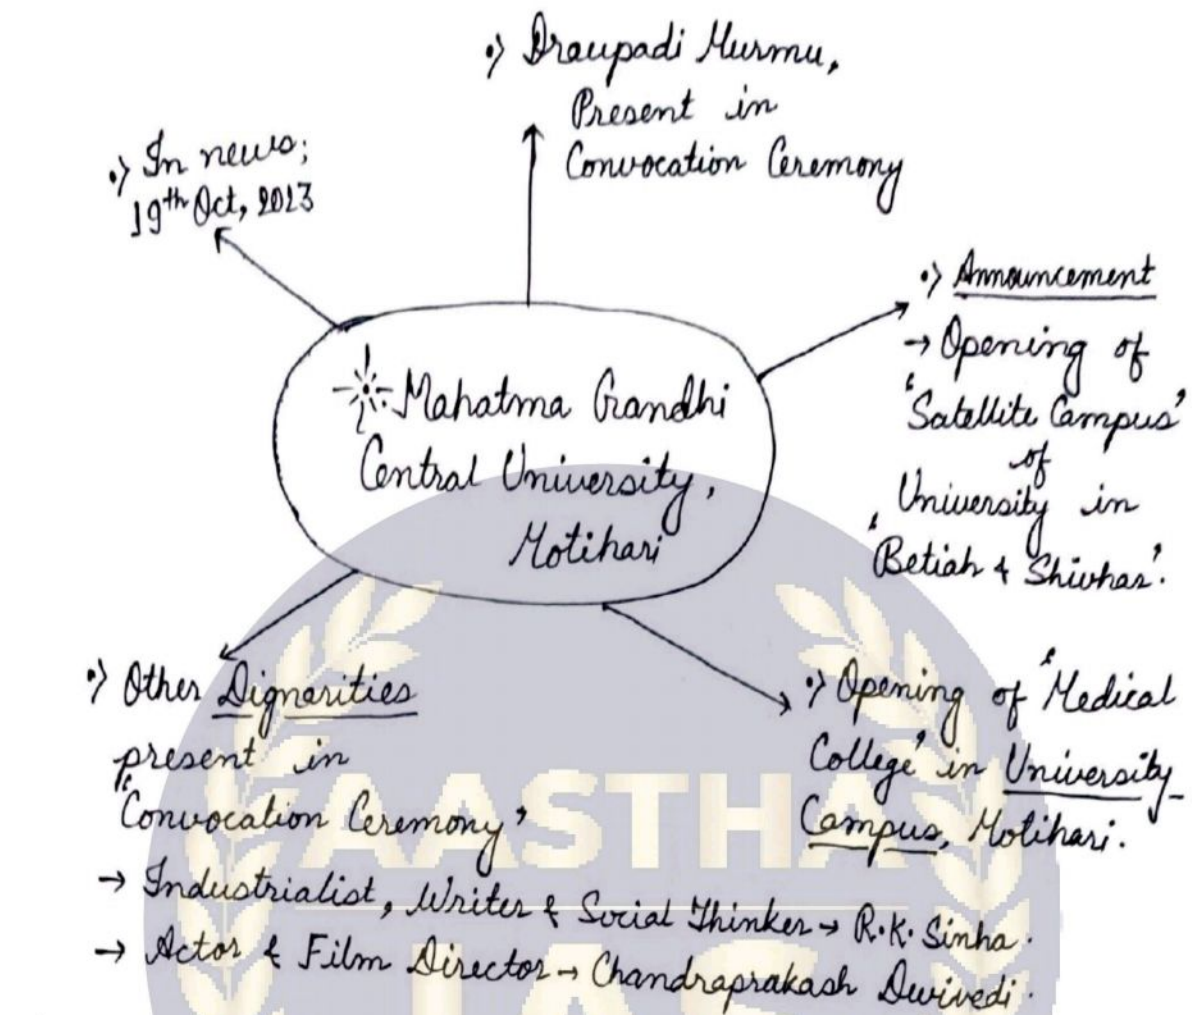 •) Draupadi Murmu,
Present in
Convocation Ceremony
•) In news;
19th Oct, 2023
•) Announcement
→ Opening of
'Satellite Campus'
of
University in
'Betiah & Shivhar'.
Mahatma Gandhi
Central University,
Motihari
•) Other Dignarities
present in
"Convocation Ceremony"
→ Industrialist, Writer & Social Thinker → R.K. Sinha.
→ Actor & Film Director → Chandraprakash Dwivedi.
•) Opening of 'Medical
College' in University
Campus, Motihari.
AASTHA
IAS